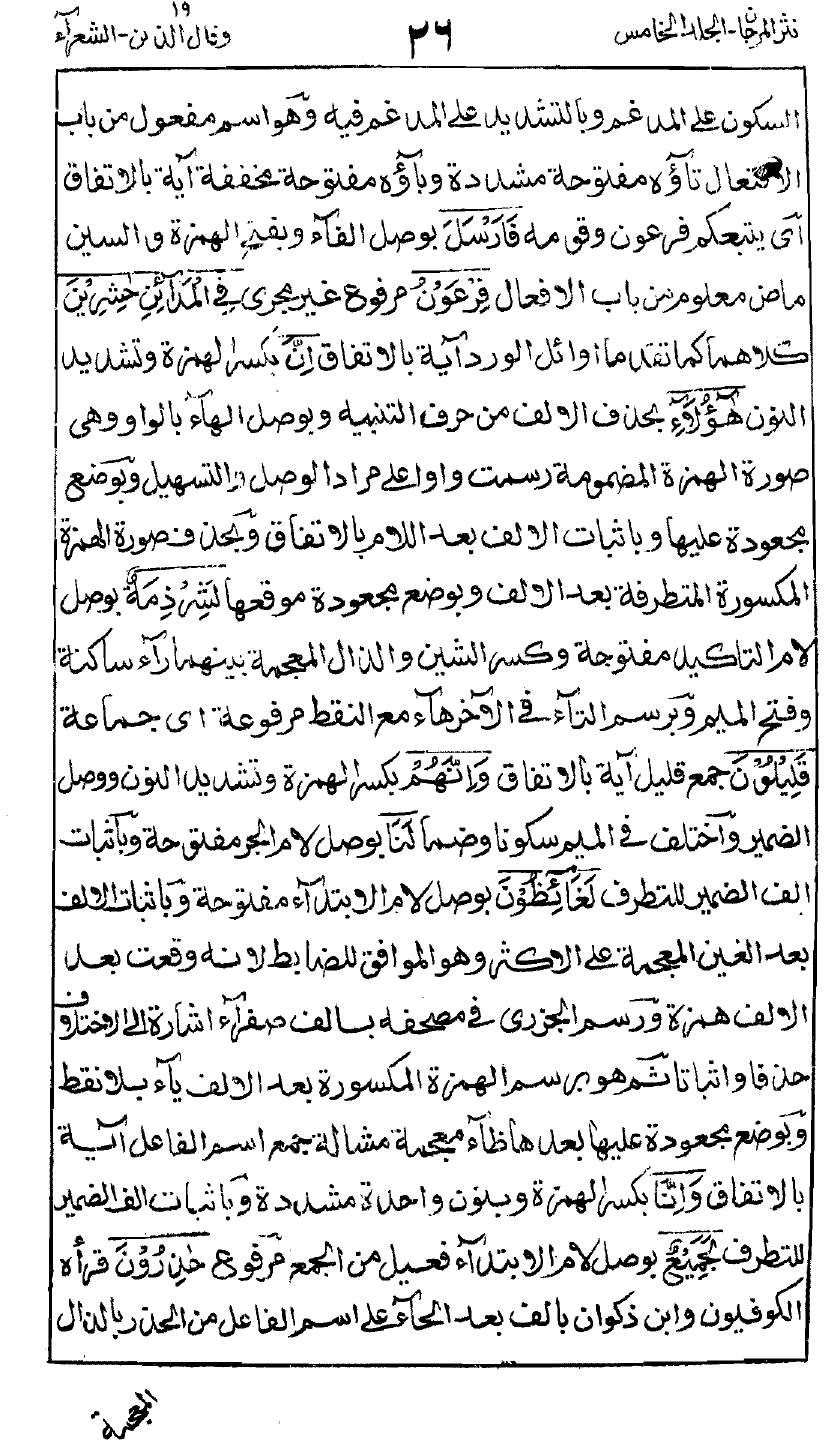 نثر المرجان - الجلد الخامس ٢٦ وقال الذين ١٩ - الشعرآء
السكون على المدغم وبالتشديد على المدغم فيه وَهو اسم مفعول من باب
الافتعال تآؤه مفتوحة مشددة وبآؤه مفتوحة مخففة آية بالاتفاق
اَى يتبعكم فرعون وقومه فَاَرْسَلَ بوصل الفآء وبفتح الهمزة والسين
ماض معلوم من باب الافعال فِرْعَوْنُ مرفوع غير مجرى فِى الْمَدَآئِنِ حٰشِرِيْنَ
كلاهما كما تقدما اوائل الورد آية بالاتفاق اِنَّ بكسر الهمزة وتشديد
النون هٰٓؤُلَآءِ بحذف الالف من حرف التنبيه وبوصل الهآء بالواو وهى
صورة الهمزة المضمومة رسمت واوا على مراد الوصل والتسهيل وَبوضع
مجعودة عليها وباثبات الالف بعد اللام بالاتفاق وَبحذف صورة الهمزة
المكسورة المتطرفة بعد الالف وبوضع مجعودة موقعها لَشِرْذِمَةٌ بوصل
لام التاكيد مفتوحة وكسر الشين والذال المعجمة بينهما رآء ساكنة
وفتح الميم وَبرسم التآء فى الاٰخر هآء مع النقط مرفوعة اى جماعة
قَلِيْلُوْنَ جمع قليل آية بالاتفاق وَاِنَّهُمْ بكسر الهمزة وتشديد النون ووصل
الضمير وَاختلف فى الميم سكونا وضما لَنَا بوصل لام الجر مفتوحة وَباثبات
الف الضمير للتطرف لَغَآئِظُوْنَ بوصل لام الابتدآء مفتوحة وَباثبات الالف
بعد الغين المعجمة على الاكثر وهو الموافق للضابط لانه وقعت بعد
الالف همزة وَرسم الجزرى فى مصحفه بالف صفرآء اشارة الى الاختلاف
حذفا واثباتا ثم هو برسم الهمزة المكسورة بعد الالف يآء بلا نقط
وَبوضع مجعودة عليها بعدها ظآء معجمة مشالة جمع اسم الفاعل آية
بالاتفاق وَاِنَّا بكسر الهمزة وبنون واحدة مشددة وَباثبات الف الضمير
للتطرف لَجَمِيْعٌ بوصل لام الابتدآء فعيل من الجمع مَرفوع حٰذِرُوْنَ قرأه
الكوفيون وابن ذكوان بالف بعد الحآء على اسم الفاعل من الحذر بالذال
المعجمة